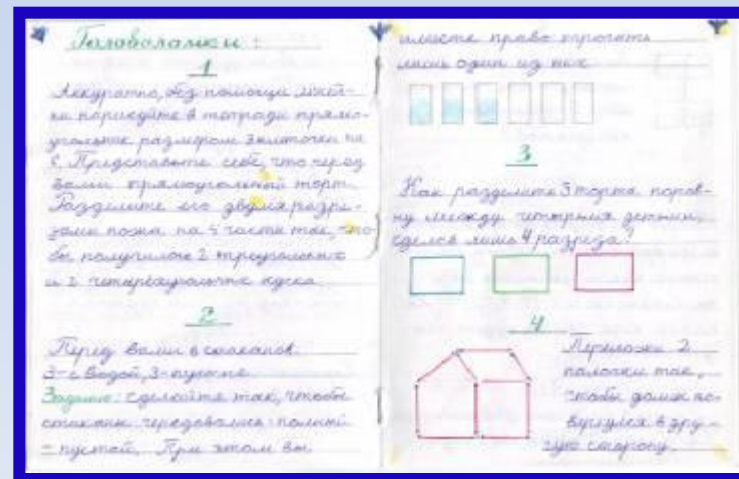 Головоломки:
1
Аккуратно, без помощи линей-
ки нарисуйте в тетради прямо-
угольник размером 3 клеточки на
6. Представьте себе, что перед
вами прямоугольный торт.
Разделите его двумя разре-
зами ножа на 4 части так, что
бы получилось 2 треугольных
и 2 четырёхугольных куска.
2
Перед вами 6 стаканов.
3-с водой, 3-пустые.
Задание: сделайте так, чтобы
стаканы чередовались: полный
- пустой. При этом вы
имеете право трогать
лишь один из них
3
Как разделить 3 торта поров-
ну между четырьмя детьми,
сделав лишь 4 разреза?
4
Переложи 2
палочки так,
чтобы домик по-
вернулся в дру-
гую сторону.